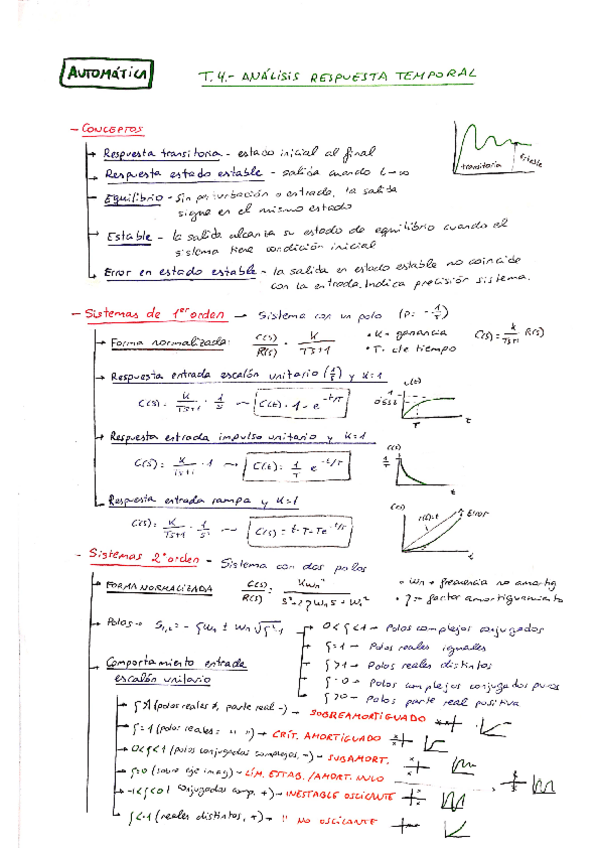 AUTOMÁTICA
T.4.- ANÁLISIS RESPUESTA TEMPORAL
- CONCEPTOS
Respuesta transitoria - estado inicial al final
Respuesta estado estable - salida cuando t→∞
Equilibrio - sin perturbación o entrada, la salida
sigue en el mismo estado
Estable - la salida alcanza su estado de equilibrio cuando el
sistema tiene condición inicial
Error en estado estable - la salida en estado estable no coincide
con la entrada. Indica precisión sistema.
transitoria
estable
- Sistemas de 1er orden → Sistema con un polo (p: -1/T)
Forma normalizada: C(s)/R(s) = K/Ts+1
• K- ganancia
• T- cte tiempo
C(s) = K/Ts+1 R(s)
Respuesta entrada escalón unitario (1/s) y K=1
C(s) = K/Ts+1 · 1/s → C(t) = 1 - e^-t/T
c(t)
1
0.632
T
t
Respuesta entrada impulso unitario y K=1
C(s) = K/Ts+1 · 1 → C(t) = 1/T e^-t/T
c(t)
1/T
t
Respuesta entrada rampa y K=1
C(s) = K/Ts+1 · 1/s² → C(s) = t - T - Te^-t/T
c(s)
r(t)=t
Error
t
- Sistemas 2º orden - Sistema con dos polos
FORMA NORMALIZADA C(s)/R(s) = Kwn²/s²+2ζwns+wn²
• wn → frecuencia no amortig
• ζ → factor amortiguamiento
Polos → S1,2 = -ζwn ± wn√ζ²-1
0<ζ<1 → Polos complejos conjugados
ζ=1 → Polos reales iguales
ζ>1 → Polos reales distintos
ζ=0 → Polos complejos conjugados puros
ζ>0 → Polos parte real positiva
Comportamiento entrada
escalón unitario
ζ>1 (polos reales ≠, parte real -) → SOBREAMORTIGUADO
ζ=1 (polos reales = " ") → CRÍT. AMORTIGUADO
0<ζ<1 (polos conjugados complejos, -) → SUBAMORT.
ζ=0 (sobre eje imag) → LÍM. ESTAB. /AMORT. NULO
-1<ζ<0 ( conjugados comp, +) → INESTABLE OSCILANTE
ζ<-1 (reales distintos, +) → " NO OSCILANTE